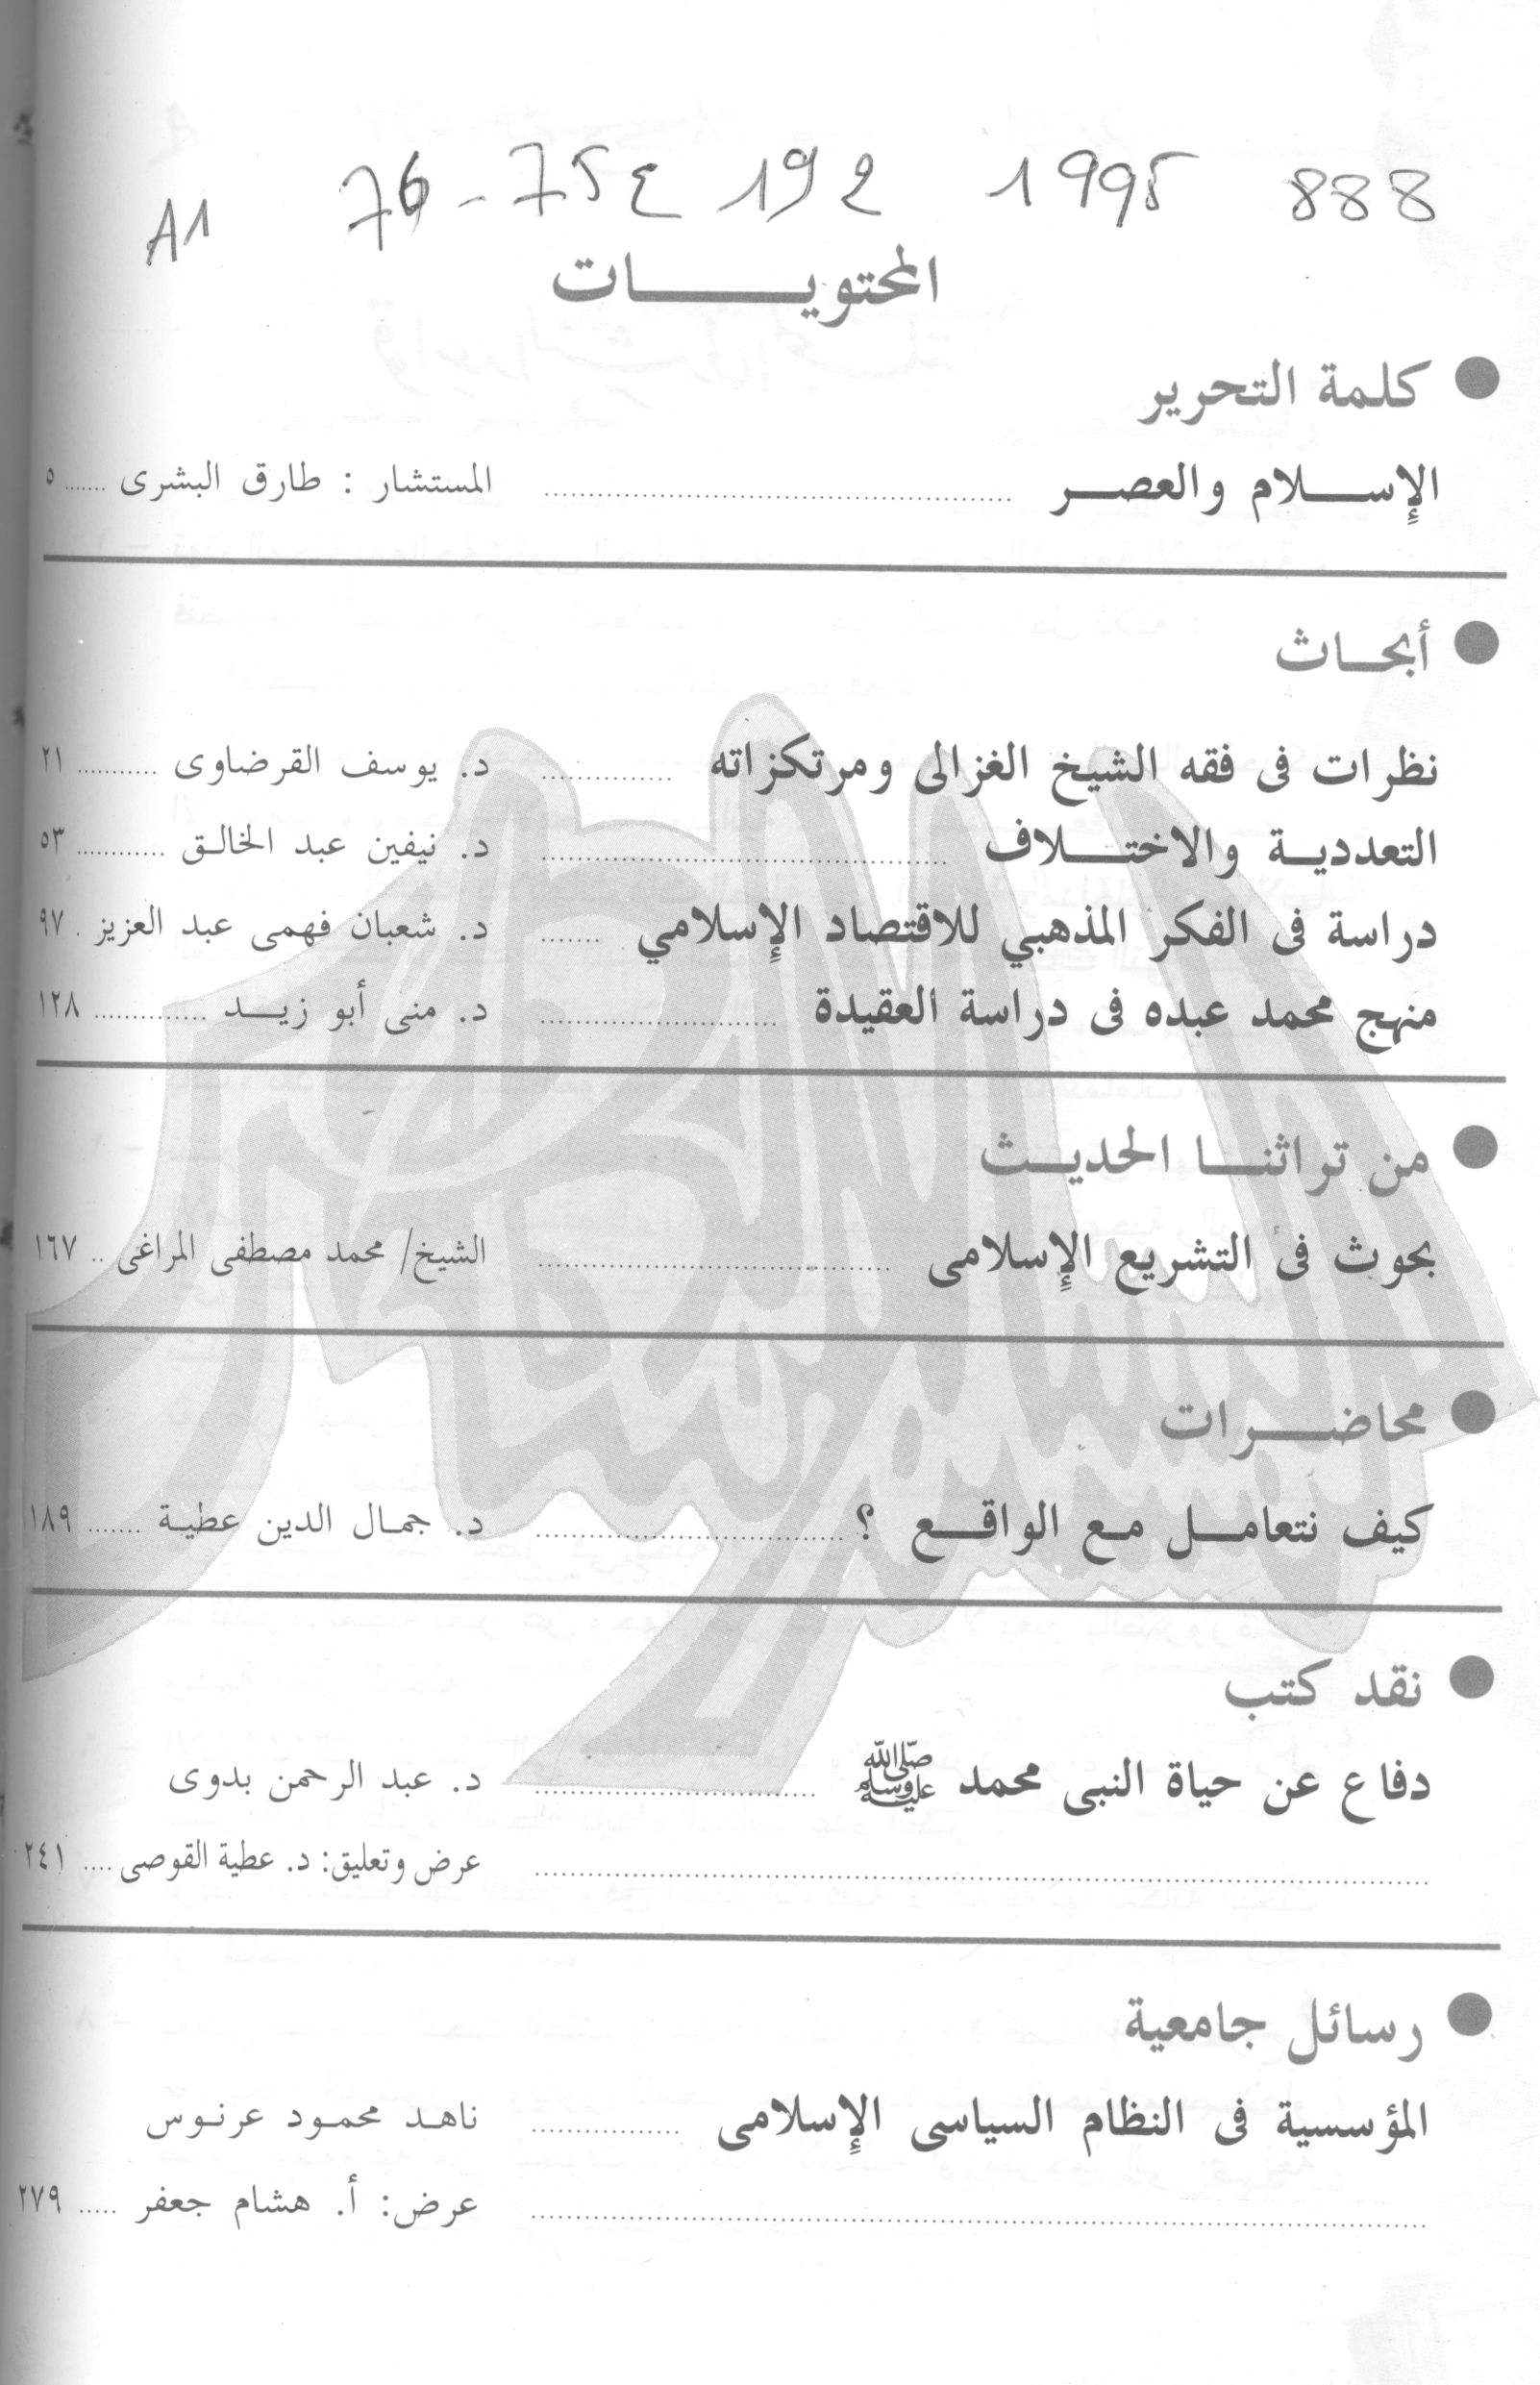 888 1995 19 ع 75 - 76 A1
المحتويات
كلمة التحرير
الإسلام والعصر ........ المستشار : طارق البشرى ...... ٥
أبحاث
نظرات فى فقه الشيخ الغزالى ومرتكزاته ........ د. يوسف القرضاوى ........ ٢١
التعددية والاختلاف ........ د. نيفين عبد الخالق ........ ٥٣
دراسة فى الفكر المذهبي للاقتصاد الإسلامي ....... د. شعبان فهمى عبد العزيز . ٩٧
منهج محمد عبده فى دراسة العقيدة ........ د. منى أبو زيد ........ ١٢٨
من تراثنا الحديث
بحوث فى التشريع الإسلامى ........ الشيخ/ محمد مصطفى المراغى .. ١٦٧
محاضرات
كيف نتعامل مع الواقع ؟ ........ د. جمال الدين عطية ....... ١٨٩
نقد كتب
دفاع عن حياة النبى محمد ﷺ ........ د. عبد الرحمن بدوى
........ عرض وتعليق: د. عطية القوصى .... ٢٤١
رسائل جامعية
المؤسسية فى النظام السياسى الإسلامى ........ ناهد محمود عرنوس
........ عرض: أ. هشام جعفر ..... ٢٧٩